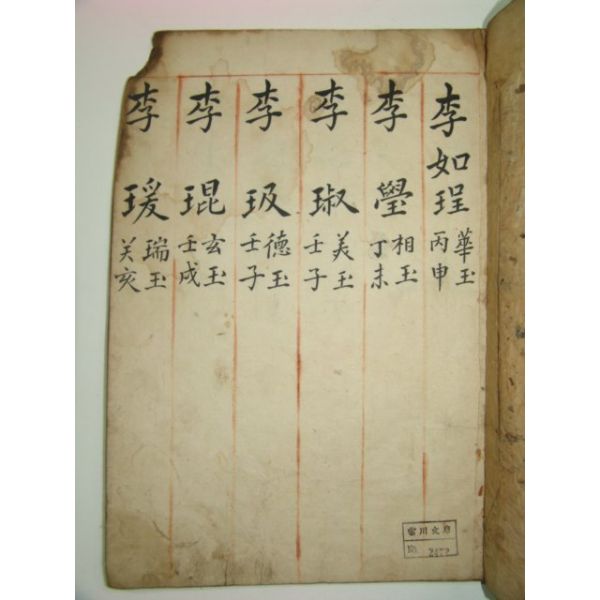 李如珵 華玉 丙申
李璺 相玉 丁未
李琡 美玉 壬子
李玖 德玉 壬子
李琨 玄玉 壬戌
李瑗 瑞玉 癸亥
2472